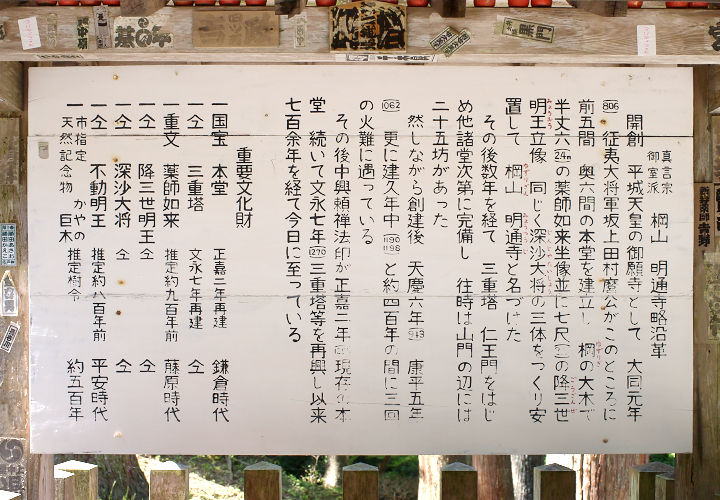 真言宗
御室派 棡山 明通寺略沿革
開創 平城天皇の御願寺として 大同元年
806 征夷大将軍坂上田村麿公がこのところに
前五間 奥六間の本堂を建立し 棡の大木で
半丈六 の薬師如来坐像並に七尺 の降三世
明王立像 同じく深沙大将の三体をつくり安
置して 棡山 明通寺と名づけた
その後数年を経て 三重塔 仁王門をはじ
め他諸堂次第に完備し 往時は山門の辺には
二十五坊があった
然しながら創建後 天慶六年 943 康平五年
1062 更に建久年中 1190 1198 と約四百年の間に三回
の火難に遇っている
その後中興頼禅法印が正嘉二年 現存の本
堂 続いて文永七年 1270 三重塔等を再興し以来
七百余年を経て今日に至っている
重要文化財
一国宝 本堂 正嘉二年再建 鎌倉時代
一仝 三重塔 文永七年再建 仝
一重文 薬師如来 推定約九百年前 藤原時代
一仝 降三世明王 仝 仝
一仝 深沙大将 仝 仝
一仝 不動明王 推定約八百年前 平安時代
一市指定
天然記念物 かやの巨木 推定樹令 約五百年